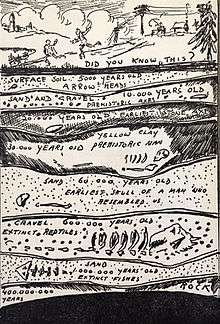 DID YOU KNOW THIS?
SURFACE SOIL. 5000 YEARS OLD
ARROW HEADS
SAND AND GRAVEL 10.000 YEARS OLD
PREHISTORIC AXES
20.000 YEARS OLD EARLIEST STONE AXE
YELLOW CLAY
30.000 YEARS OLD PREHISTORIC MAN
SAND. 60.000 YEARS OLD
EARLIEST SKULL OF A MAN WHO
RESEMBLED US.
GRAVEL 600.000 YEARS OLD
EXTINCT REPTILES
SAND
000.000 YEARS OLD
EXTINCT FISHES
ROCK
400.000.000
YEARS